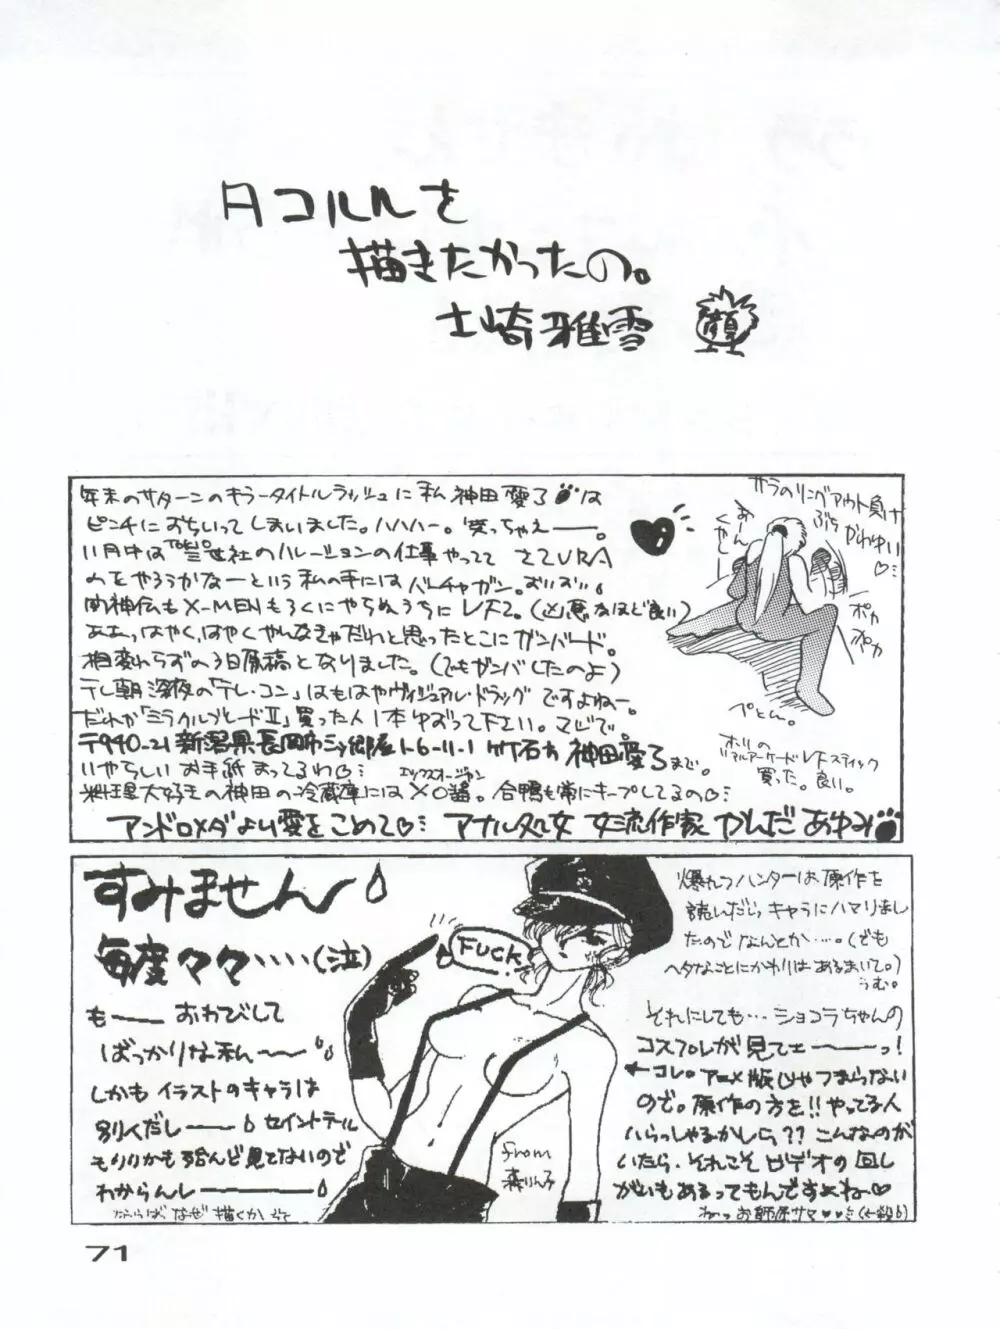 タコルルを
描きたかったの。
士崎雅雪 顔
年末のサターンのキラータイトルラッシュに私 神田愛了は
ピンチにおちいってしまいました。ハハハー。笑っちゃえー。
11月中は 世社のハレーションの仕事やってて さてURA
のをやろうかなーという私の手にはバーチャガン。
闘神伝もX-MENもろくにやらぬうちにVF2。(凶悪なほど良い)
ああっはやく、はやくやんなきゃだわと思ったとこにガンバード。
相変わらずの3日原稿となりました。(でもガンバしたのよ)
テレ朝深夜の「テレ・コン」はもはやヴィジュアル・ドラッグですよねー
だれか「ミラクルブレードⅡ」買った人1本ゆずって下さい。マジで。
いやらしいお手紙まってるわ♡
エックスオージャン
料理大好きの神田の冷蔵庫にはXO醤。合鴨も常にキープしてるの♡
アンドロメダより愛をこめて♡ アナル処女 女流作家 かんだあゆみ
サラのリングアウト負け
ぶち かわゆい
♡
ポカ
ポカ
ぺとん。
ホリの
リアルアーケードVFスティック
買った。良い。
すみませんー
毎度々々・・・・(泣)
もー おわびして
ばっかりな私〜〜
しかもイラストのキャラは
別人だしー セイントテール
もりりかも殆んど見てないので
わからんしー
ならば なぜ描くか って
FUCK
from
森りん子
爆れつハンターは、原作を
読んだらキャラにハマりまし
たのでなんとか…。(でも
ヘタなことにかわりはあるまいて。)
うむ。
それにしても…ショコラちゃんの
コスプレが見てェーーっ!
←コレ。アニメ版じゃつまらない
ので。原作の方を!!やってる人
いらっしゃるかしら??こんなのが
いたら、それこそビデオの回し
がいもあるってもんですよねー♡
ねっお師匠サマ♥♥
71